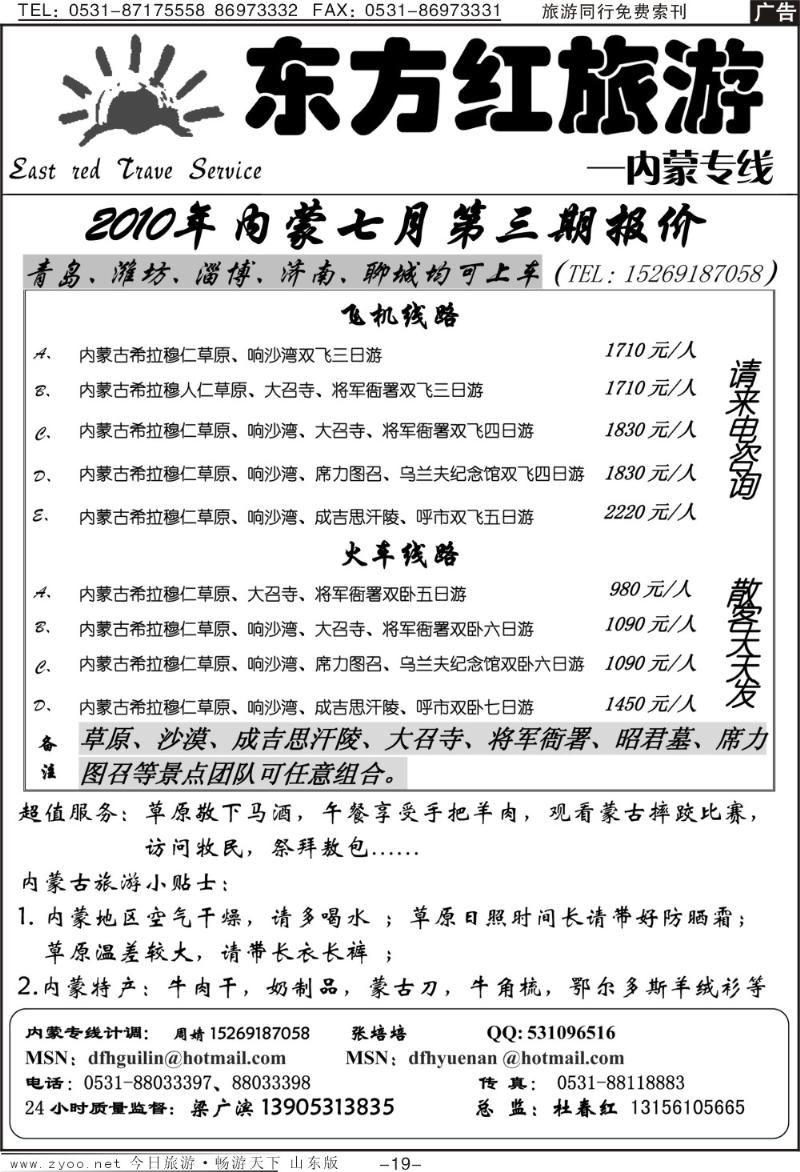 TEL: 0531-87175558 86973332 FAX: 0531-86973331 旅游同行免费索刊 广告
东方红旅游
East red Trave Service
—内蒙专线
2010年内蒙七月第三期报价
青岛、潍坊、淄博、济南、聊城均可上车(TEL: 15269187058)
飞机线路
A、 内蒙古希拉穆仁草原、响沙湾双飞三日游 1710 元/人
B、 内蒙古希拉穆人仁草原、大召寺、将军衙署双飞三日游 1710 元/人
C、 内蒙古希拉穆仁草原、响沙湾、大召寺、将军衙署双飞四日游 1830 元/人
D、 内蒙古希拉穆仁草原、响沙湾、席力图召、乌兰夫纪念馆双飞四日游 1830 元/人
E、 内蒙古希拉穆仁草原、响沙湾、成吉思汗陵、呼市双飞五日游 2220 元/人
请来电咨询
火车线路
A、 内蒙古希拉穆仁草原、大召寺、将军衙署双卧五日游 980 元/人
B、 内蒙古希拉穆仁草原、响沙湾、大召寺、将军衙署双卧六日游 1090 元/人
C、 内蒙古希拉穆仁草原、响沙湾、席力图召、乌兰夫纪念馆双卧六日游 1090 元/人
D、 内蒙古希拉穆仁草原、响沙湾、成吉思汗陵、呼市双卧七日游 1450 元/人
散客天天发
备注 草原、沙漠、成吉思汗陵、大召寺、将军衙署、昭君墓、席力
图召等景点团队可任意组合。
超值服务：草原敬下马酒，午餐享受手把羊肉，观看蒙古摔跤比赛，
访问牧民，祭拜敖包……
内蒙古旅游小贴士：
1. 内蒙地区空气干燥，请多喝水 ；草原日照时间长请带好防晒霜；
草原温差较大，请带长衣长裤 ；
2.内蒙特产：牛肉干，奶制品，蒙古刀，牛角梳，鄂尔多斯羊绒衫等
内蒙专线计调： 周婧 15269187058 张培培 QQ: 531096516
MSN：dfhguilin@hotmail.com MSN：dfhyuenan @hotmail.com
电话：0531-88033397、88033398 传 真： 0531-88118883
24 小时质量监督：梁广滨 13905313835 总 监：杜春红 13156105665
www.zyoo.net 今日旅游·畅游天下 山东版 -19-